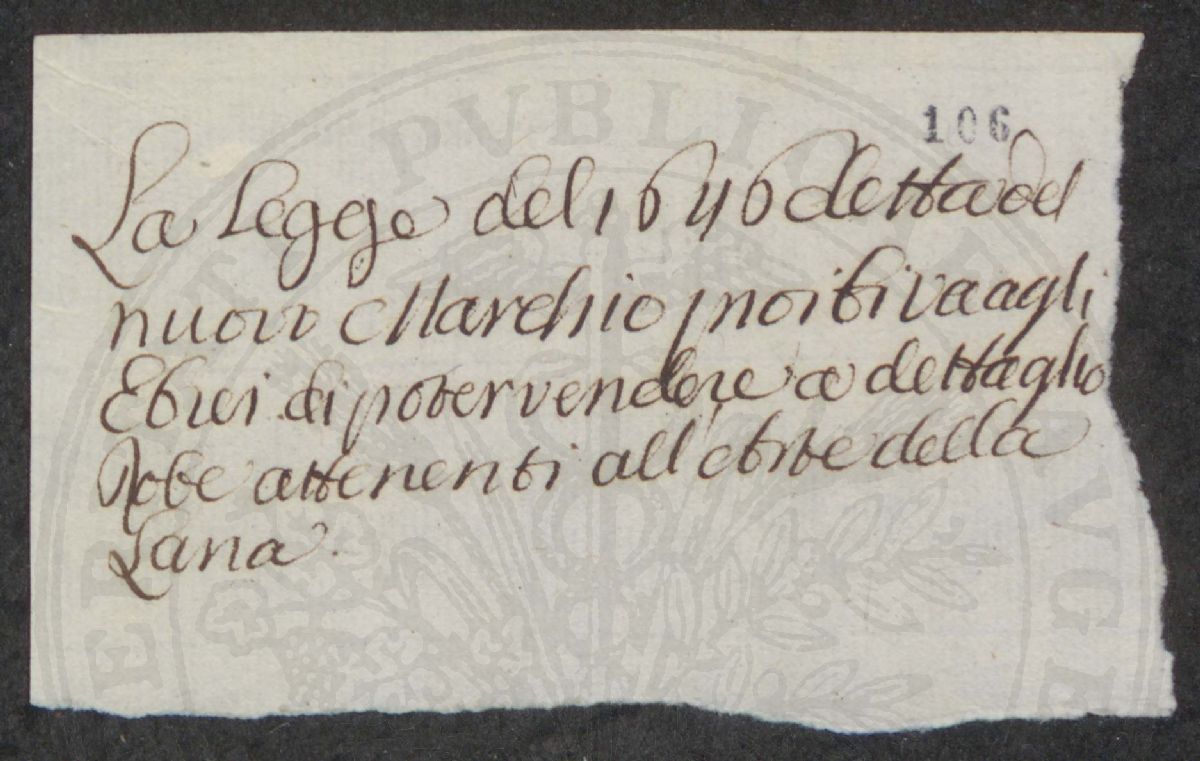 106
La Legge del 1646 detta del
nuovo Marchio proibiva agli
Ebrei di poter vendere a dettaglio
Robe attenenti all'Arte della
Lana.